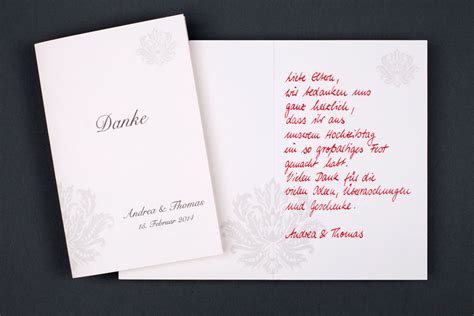 Danke
Andrea & Thomas
15. Februar 2014
Liebe Eltern,
wir bedanken uns
ganz herzlich,
dass ihr aus
unserem Hochzeitstag
ein so großartiges Fest
gemacht habt.
Vielen Dank für die
vielen Ideen, Überraschungen
und Geschenke.
Andrea & Thomas